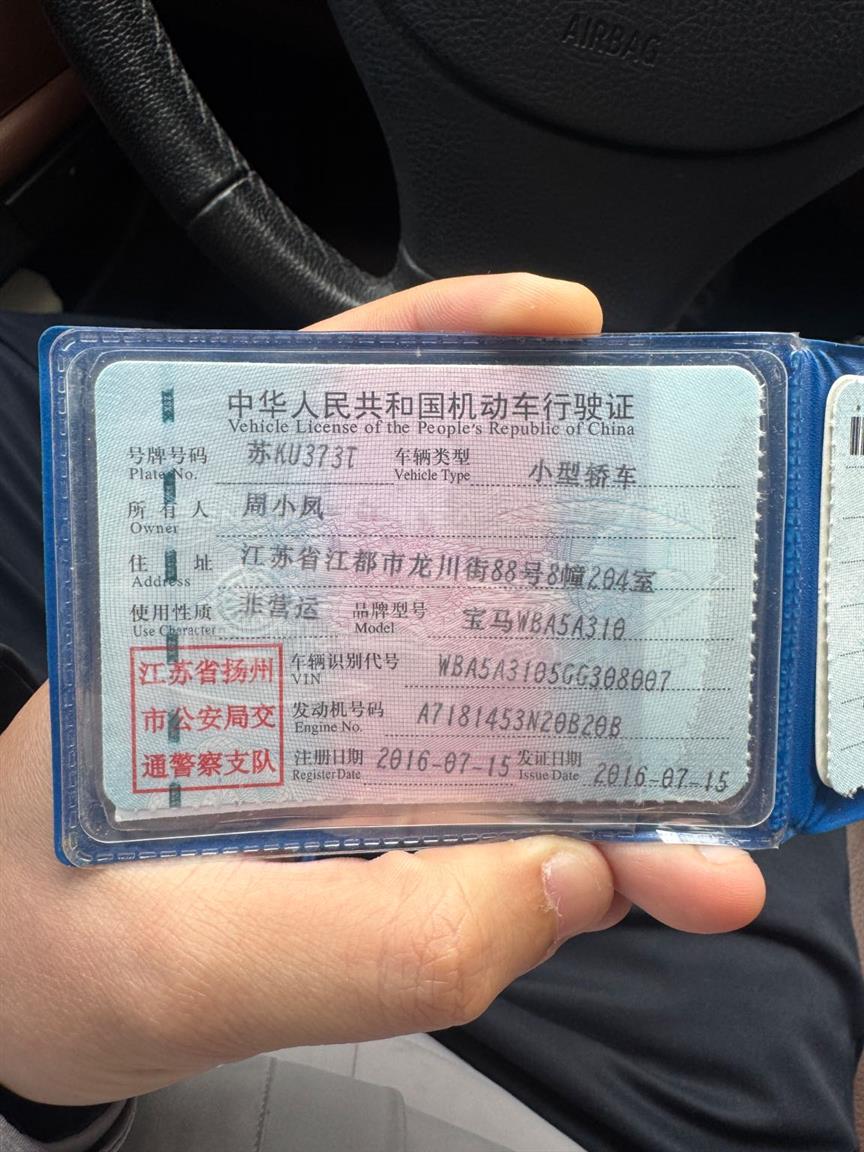 AIRBAG
中华人民共和国机动车行驶证
Vehicle License of the People's Republic of China
号牌号码 苏KU373T 车辆类型 小型轿车
Plate No. Vehicle Type
所有人 周小凤
Owner
住址 江苏省江都市龙川街88号8幢204室
Address
使用性质 非营运 品牌型号 宝马WBA5A310
Use Character Model
江苏省扬州
市公安局交
通警察支队
车辆识别代号 WBA5A3105GG308007
VIN
发动机号码 A7181453N20B20B
Engine No.
注册日期 2016-07-15 发证日期 2016-07-15
Register Date Issue Date